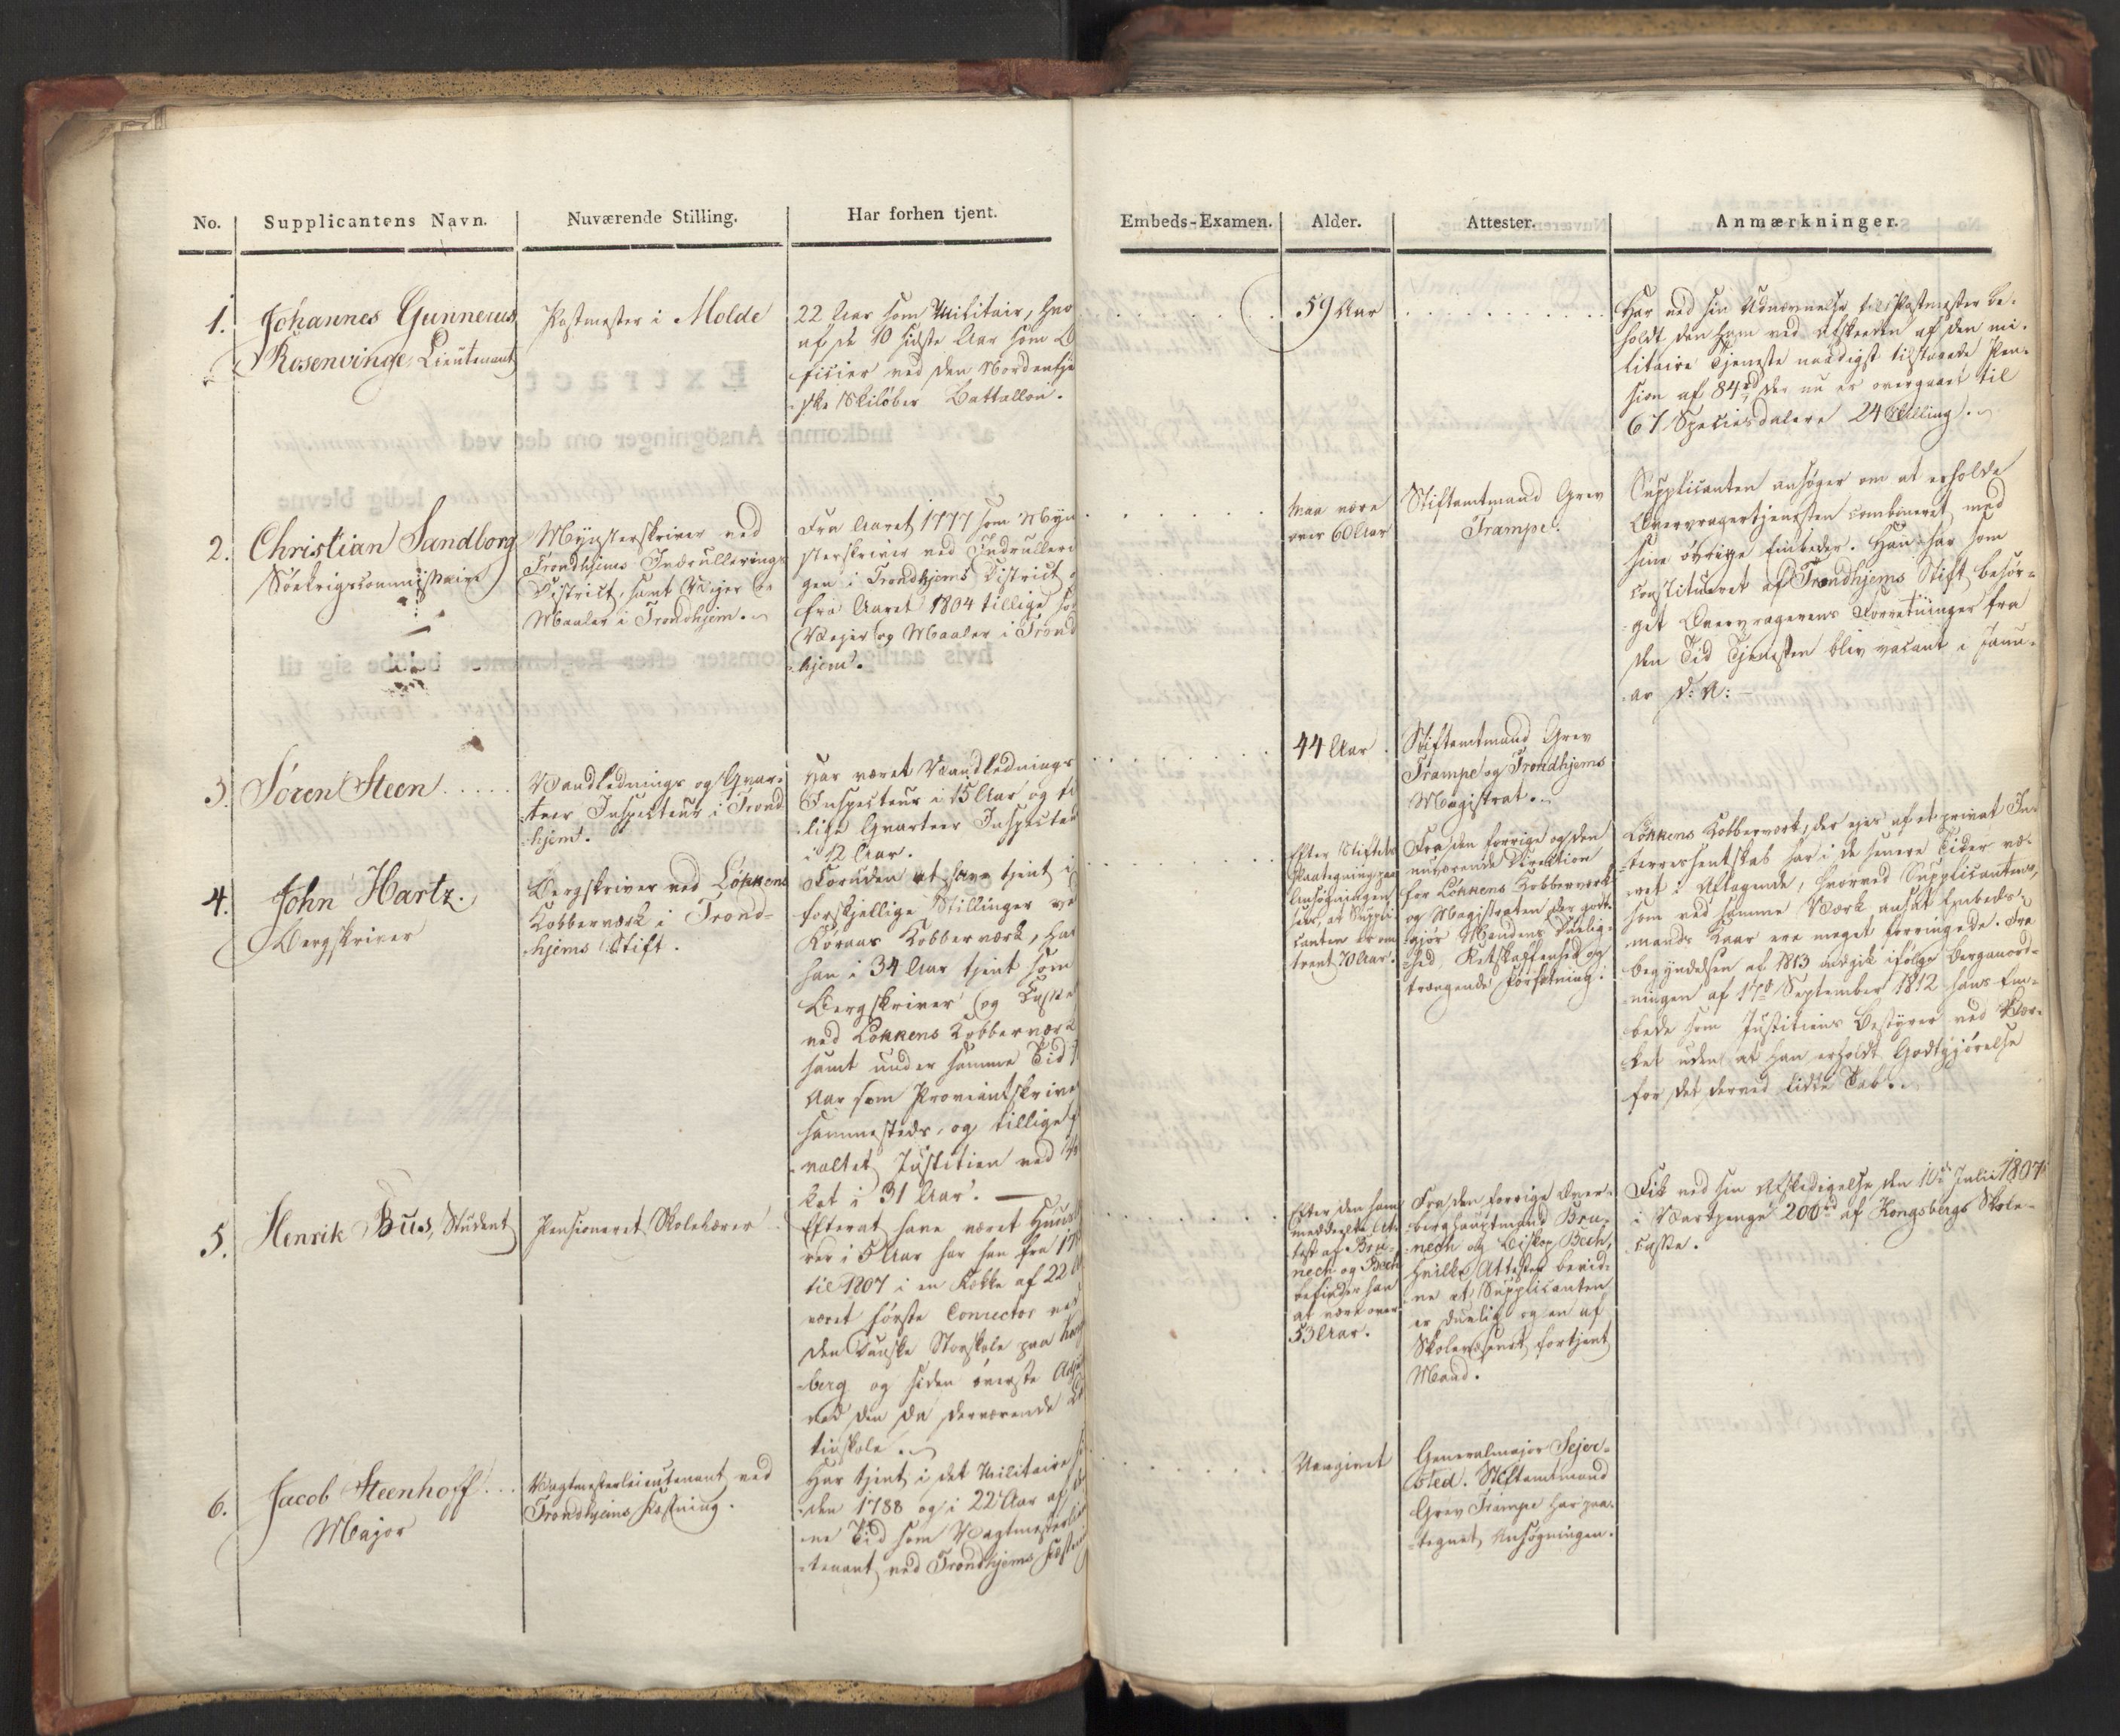 No. Supplicantens Navn. Nuværende Stilling. Har forhen tjent.
Embeds-Examen. Alder. Attester. Anmærkninger.
1.
Johannes Gunnerus
Rosenvinge, Lieutenant
Postmester i Molde
22 Aar som Militair, hvor
af de 10 sidste Aar som O
ficier ved den Nordenfje
ske Skiløber Battallon.
59 Aar
Har ved sin Udnævnelse til Postmester be-
holdt den ham ved Afskeeden af den mi-
litaire Tjeneste naadigst tilstaaede Pen-
sion af 84 rd, der nu er overgaaet til
67 Speciesdalere 24 Skilling.
2.
Christian Sandborg
Søekrigscommissaire
Mynsterskriver ved
Trondhjems Indrullerings
District, samt Veier og
Maaler i Trondhjem.
Fra Aaret 1777 som Myn
sterskriver ved Indrulleri
gen i Trondhjems District
fra Aaret 1804 tillige so
Veyer og Maaler i Trond
hjem.
Maa være
over 60 Aar
Stiftamtmand Grev
Trampe.
Supplicanten ansøger om at erholde
Overvragertjenesten combineret med
sine øvrige Embeder. Han har som
constitueret af Trondhjems Stift besør-
get Overvragerens Forretninger fra
den Tid Tjenesten blev vacant i Janu-
ar d: A:
3.
Søren Steen
Vandlednings og Qvar-
teer Inspecteur i Trond
hjem.
Har været Vandlednings
Inspecteur i 15 Aar og til
lige Qvarteer Inspecteur
i 12 Aar.
44 Aar
Stiftamtmand Grev
Trampe og Trondhjems
Magistrat.
4.
John Hartz.
Bergskriver
Bergskriver ved Løkkens
Kobberværk i Trond-
hjems Stift.
Foruden at have tjent i
forskjellige Stillinger ve
Røraas Kobberværk, har
han i 34 Aar tjent som
Bergskriver og Casse
ved Løkkens Kobberværk
samt under samme Tid
Aar som Proviantskriver
sammesteds, og tillige f
valtet Justitien ved Væ
ket i 31 Aar.
Efter Stiftets
Paategning paa
Ansøgningen
seer, at Suppli-
canten er om
trent 70 Aar.
Fra den forrige og den
nuværende Direction
for Løkkens Kobberværk
og Magistraten der godt-
gjør Mandens Duelig-
hed, Retskaffenhed og
trængende Forfatning.
Løkkens Kobberværk, der ejes af et privat In-
terressentskab har i de senere Tider væ-
ret i Aftagende, hvorved Supplicantens,
som ved samme Værk ansat Embeds-
mands Kaar ere meget forringede. Fra
Begyndelsen af 1813 afgik ifølge Berganord-
ningen af 17de September 1812 hans Em-
bede som Justitiens Bestyrer ved Vær-
ket uden at han erholdt Godtgjørelse
for det derved lidte Tab.
5.
Henrik Bus, Student
Pensioneret Skolelærer
Efterat have været Huuslæ
rer i 5 Aar har han fra 17
til 1807 i en Række af 22
været første Conrector ved
den danske Storskole paa Kongs
berg og siden øverste
ved den da derværende La
tinskole.
Efter den ham
meddeelte At-
test af Brü-
nech og Bech
befinder han
at være over
53 Aar.
Fra den forrige Over-
berghauptmand Brü-
nech og Biskop Bech,
hvilke Attester bevid-
ne at Supplicanten
er duelig og en af
Skolevæsenet fortjent
Mand.
Fik ved sin Afskedigelse den 10de Julii 1807
i Vartpenge 200 rd af Kongsbergs Skole-
casse.
6.
Jacob Steenhoff
Major
Vagtmesterlieutenant ved
Trondhjems Fæstning.
Har tjent i det Militaire si
den 1788 og i 22 Aar af den
ne Tid som Vagtmesterlieu
tenant ved Trondhjems Fæstn
Uangivet
Generalmajor Sejer-
sted. Stiftamtmand
Grev Trampe har paa-
tegnet Ansøgningen.